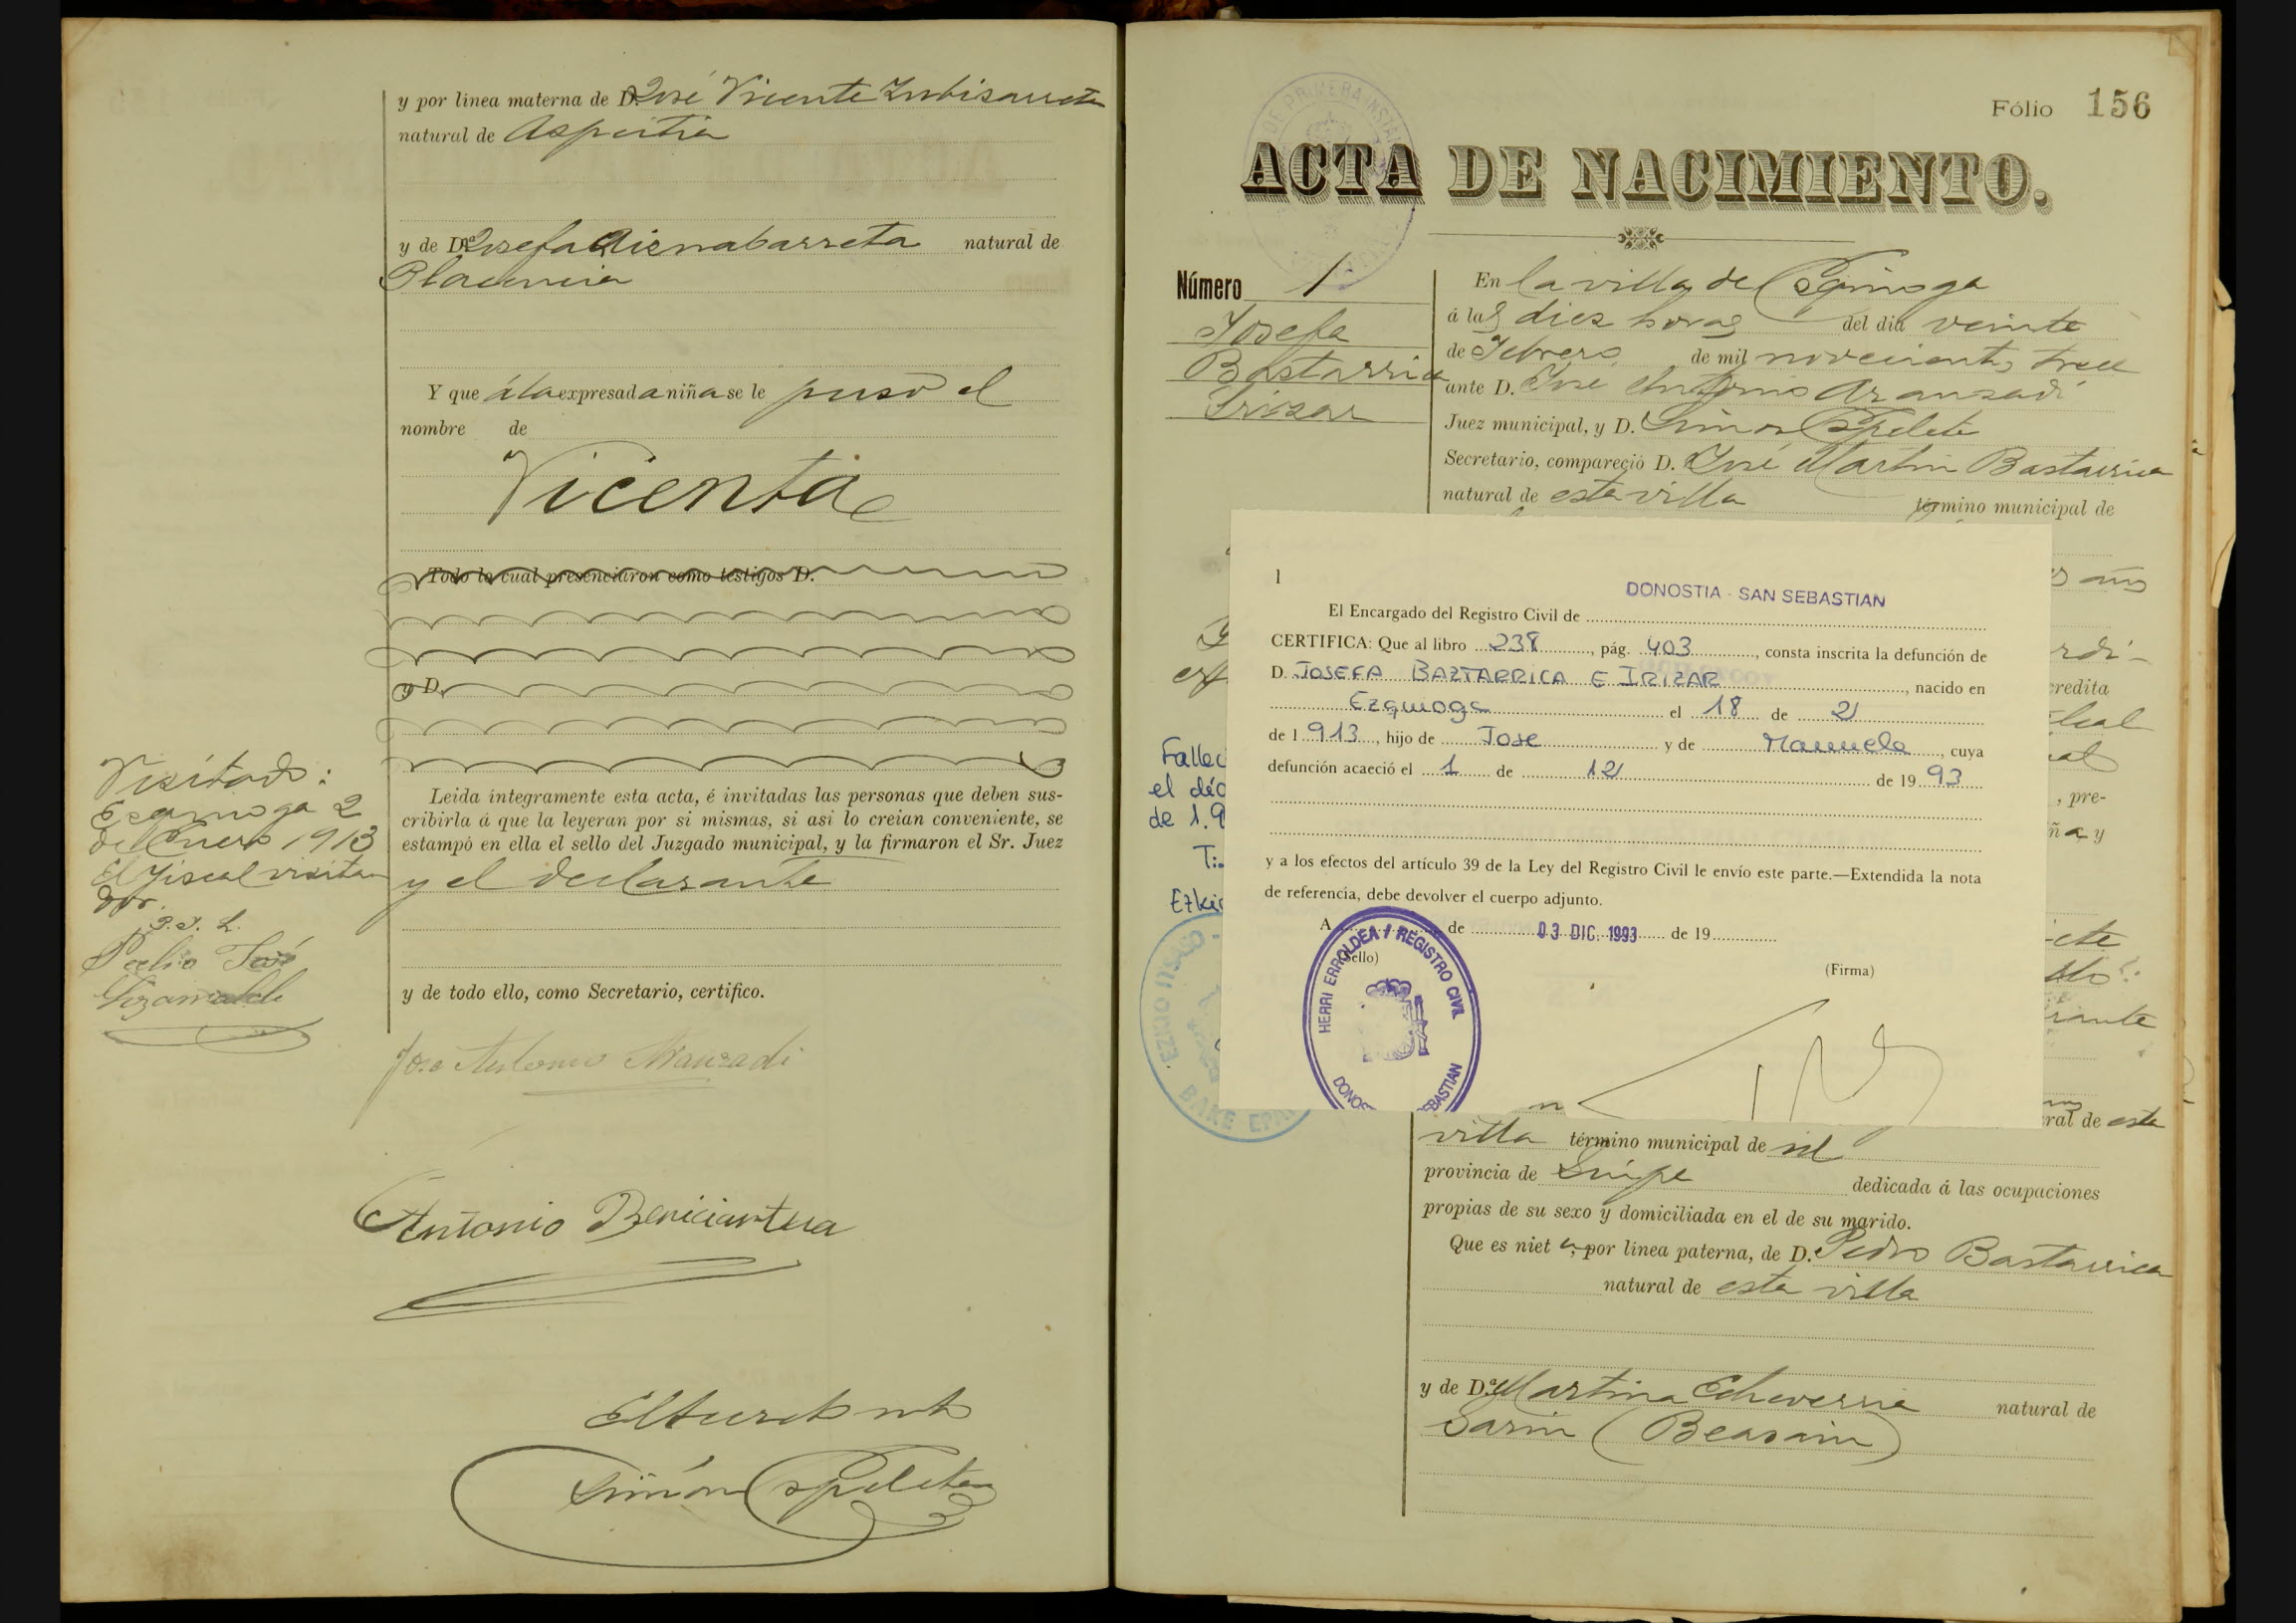 y por línea materna de D. José Vicente Zubizarreta
natural de Aspeitia
y de Dª Josefa natural de
Placencia
Y que á la expresada niña se le puso el
nombre de
Vicenta
Todo lo cual presenciaron como testigos D.
y D.
Leida íntegramente esta acta, é invitadas las personas que deben sus-
cribirla á que la leyeran por si mismas, si asi lo creían conveniente, se
estampó en ella el sello del Juzgado municipal, y la firmaron el Sr. Juez
y el declarante
y de todo ello, como Secretario, certifico.
José Antonio Aranzadi
Antonio
Simón Espeleta
Visitado:
Ezquioga 2
de Enero 1913
El Fiscal visita-
dor.
José
Fólio 156
ACTA DE NACIMIENTO.
Número 1
Josefa
Bastarrica
Irizar
En la villa de Ezquioga
á las diez horas del dia veinte
de Febrero de mil novecientos trece
ante D. José Antonio Aranzadi
Juez municipal, y D. Simón Espeleta
Secretario, compareció D. José Martin Bastarrica
natural de esta villa término municipal de
1
DONOSTIA - SAN SEBASTIAN
El Encargado del Registro Civil de
CERTIFICA: Que al libro 238, pág. 403, consta inscrita la defunción de
D. JOSEFA BAZTARRICA E IRIZAR, nacido en
Ezquioga el 18 de 2
de 1 913, hijo de Jose y de Manuela, cuya
defunción acaeció el 1 de 12 de 19 93
y a los efectos del artículo 39 de la Ley del Registro Civil le envío este parte.—Extendida la nota
de referencia, debe devolver el cuerpo adjunto.
A de 03 DIC. 1993 de 19
(Sello)
(Firma)
HERRI ERROLDEA / REGISTRO CIVIL
Fallec
el déc
de 1.9
T:
Ezki
EZKIO ITSASO
BAKE EPA
credita
, pre-
ña y
ral de esta
villa término municipal de id
provincia de Guipa dedicada á las ocupaciones
propias de su sexo y domiciliada en el de su marido.
Que es nieta, por línea paterna, de D. Pedro Bastarrica
natural de esta villa
y de D.ª Martina Echeverria natural de
Garin (Beasain)